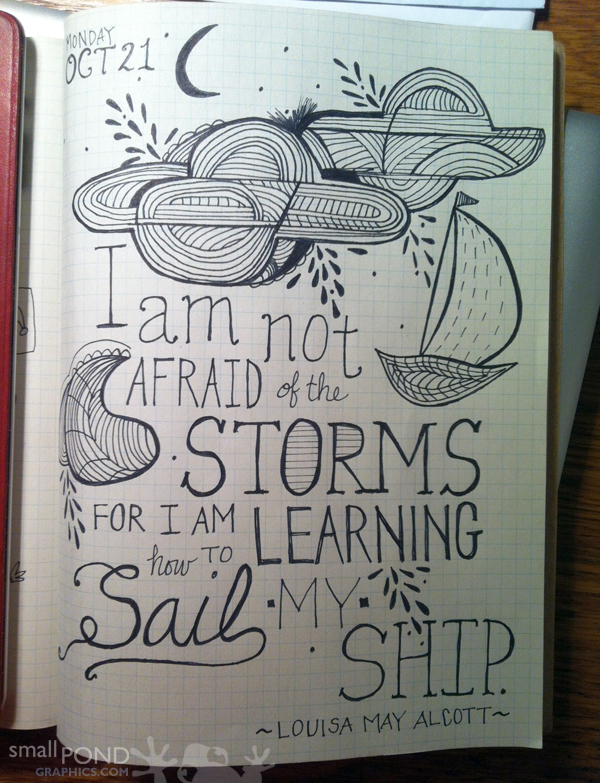 MONDAY
OCT 21
I am not
AFRAID of the
STORMS
FOR I AM LEARNING
how TO
Sail · MY ·
SHIP.
~ LOUISA MAY ALCOTT ~
small POND
GRAPHICS.COM